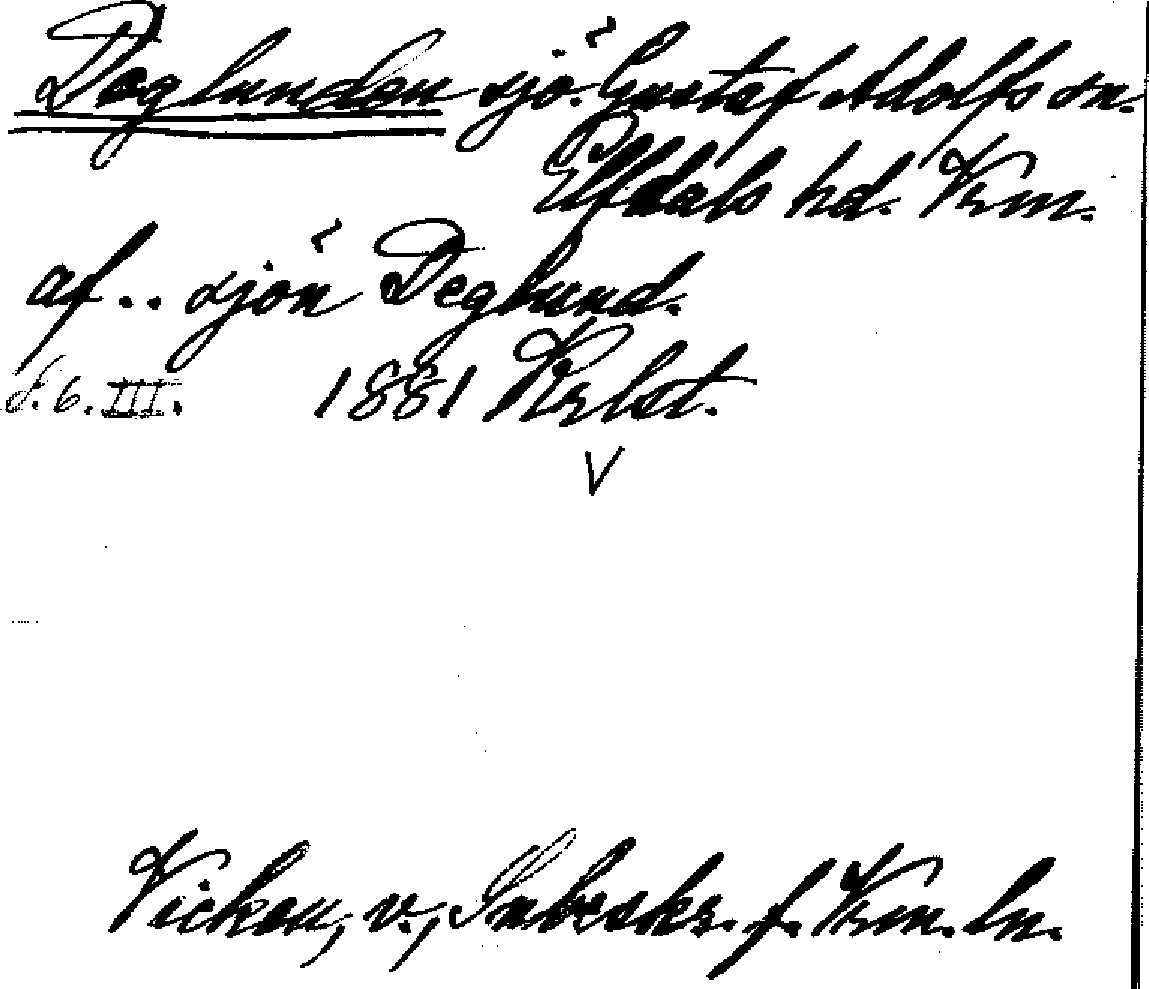 Deglunden sjö. Gustaf Adolfs sn.
Elfdals hd. Vrm.
af.. sjön Deglund.
d. 6. III. 1881 Krlst.
V
Vicken, v., Inbeskr. f. Vrm. ln.